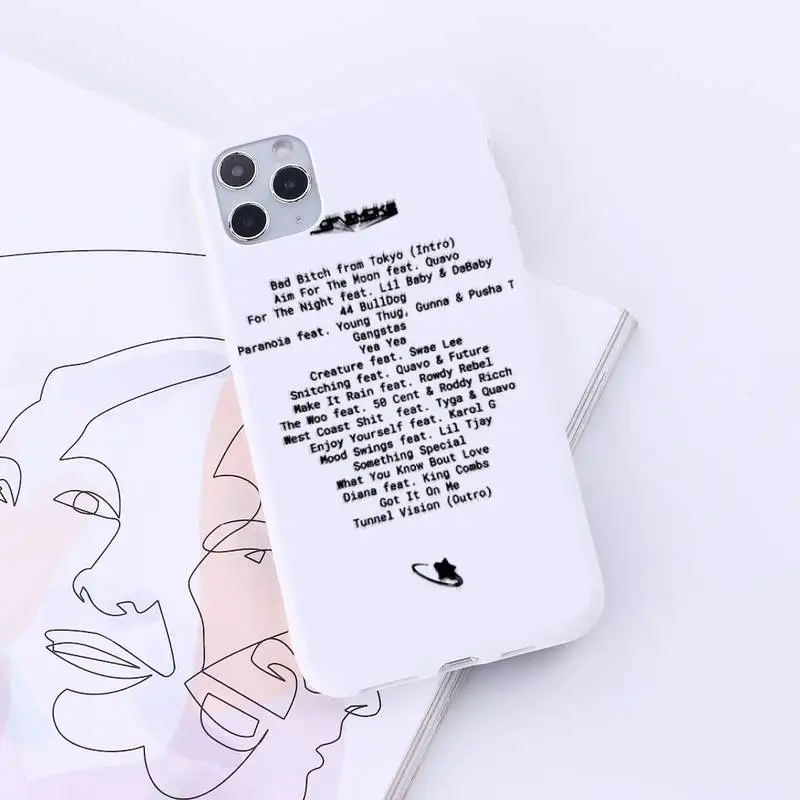 POP SMOKE
Bad Bitch from Tokyo (Intro)
Aim For The Moon feat. Quavo
For The Night feat. Lil Baby & DaBaby
44 BullDog
Paranoia feat. Young Thug, Gunna & Pusha T
Gangstas
Yea Yea
Creature feat. Swae Lee
Snitching feat. Quavo & Future
Make It Rain feat. Rowdy Rebel
The Woo feat. 50 Cent & Roddy Ricch
West Coast Shit feat. Tyga & Quavo
Enjoy Yourself feat. Karol G
Mood Swings feat. Lil Tjay
Something Special
What You Know Bout Love
Diana feat. King Combs
Got It On Me
Tunnel Vision (Outro)